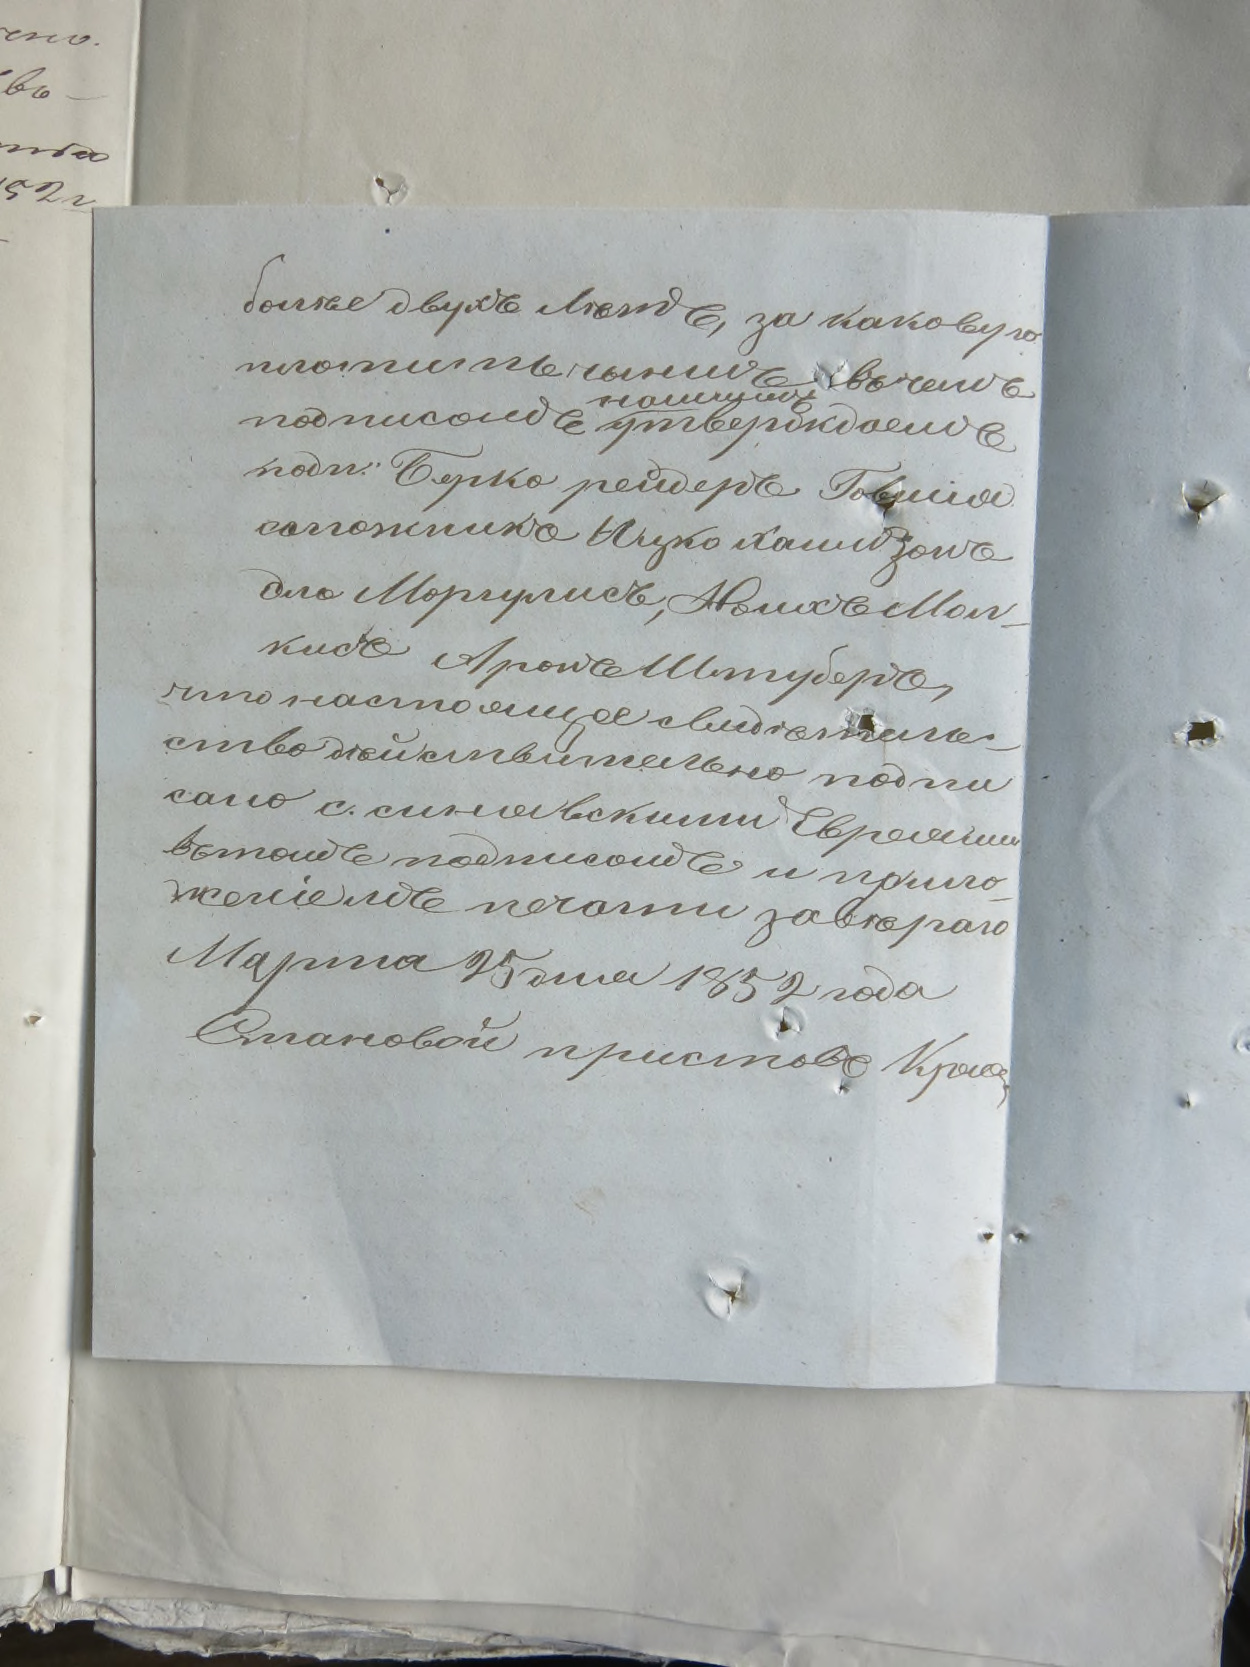 чно.
въ —
52 г.
болѣе двухъ лѣтъ, за каковую
платитъ въ чемъ
нашимъ
подписомъ утверждаемъ
подп: Берко рейдеръ Говшия
сапожникъ Ицко хаим Зон
для Моргулисъ, Хаихъ Мал-
кисъ Аронъ Штуберъ,
что настоящее свидѣтель-
ство дѣйствительно подпи
сано с. синявскими Евреями
въ томъ подписомъ и прило-
женіемъ печати завѣряю
Марта 25 дня 1852 года
Становой приставъ